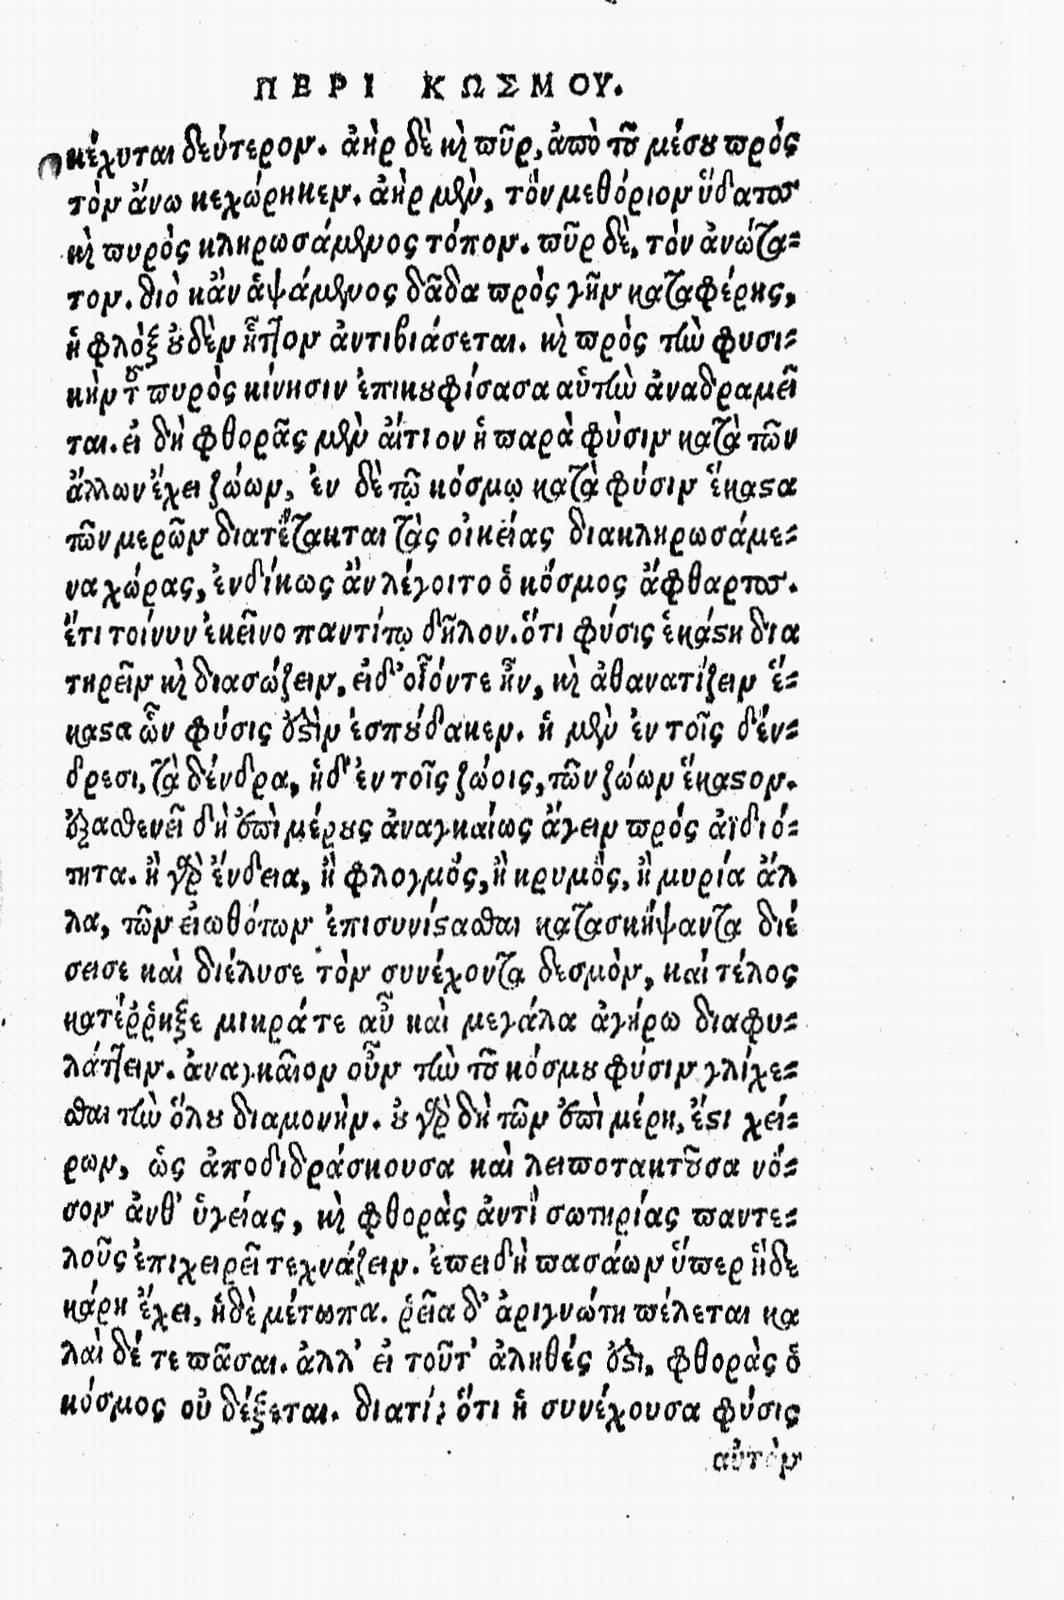 ΠΕΡΙ ΚΩΣΜΟΥ.
κέχυται δεύτερον. ἀὴρ δὲ καὶ πῦρ, ἀπὸ τοῦ μέσου πρός
τὸν ἄνω κεχώρηκεν. ἀὴρ μὲν, τὸν μεθόριον ὕδατος
καὶ πυρὸς κληρωσάμενος τόπον. πῦρ δὲ, τὸν ἀνώτα-
τον. διὸ κἂν ἁψάμενος δᾶδα πρὸς γῆν καταφέρης,
ἡ φλὸξ οὐδὲν ἧττον ἀντιβιάσεται. καὶ πρὸς τὴν φυσι-
κὴν τοῦ πυρὸς κίνησιν ἐπικουφίσασα αὑτὴν ἀναδραμεῖ
ται. εἰ δὴ φθορᾶς μὲν αἴτιον ἡ παρὰ φύσιν κατὰ τῶν
ἄλλων ἔχει ζώων, ἐν δὲ τῷ κόσμῳ κατὰ φύσιν ἕκαστα
τῶν μερῶν διατέτακται τὰς οἰκείας διακληρωσάμε-
να χώρας, ἐνδίκως ἂν λέγοιτο ὁ κόσμος ἄφθαρτος.
ἔτι τοίνυν ἐκεῖνο παντί πῳ δῆλον. ὅτι φύσις ἑκάστη δια
τηρεῖν καὶ διασώζειν, εἰ δ' οἷόντε ἦν, καὶ ἀθανατίζειν ἕ-
καστα ὧν φύσις ἐστὶν ἐσπούδακεν. ἡ μὲν ἐν τοῖς δέν-
δρεσι, τὰ δένδρα, ἡ δ' ἐν τοῖς ζώοις, τῶν ζώων ἕκαστον.
ἐξασθενεῖ δὴ ἐπὶ μέρους ἀναγκαίως ἄγειν πρός ἀϊδιό-
τητα. ἢ γὰρ ἔνδεια, ἢ φλογμός, ἢ κρυμὸς, ἢ μυρία ἄλ
λα, τῶν εἰωθότων ἐπισυνίστασθαι κατασκήψαντα διέ
σεισε καὶ διέλυσε τὸν συνέχοντα δεσμὸν, καὶ τέλος
κατέῤῥηξε μικρά τε αὖ καὶ μεγάλα ἀγήρω διαφυ-
λάττειν. ἀναγκαῖον οὖν τὴν τοῦ κόσμου φύσιν γλίχε-
σθαι τὴν ὅλου διαμονὴν. οὐ γὰρ δὴ τῶν ἐπὶ μέρη, ἔστι χεί-
ρων, ὡς ἀποδιδράσκουσα καὶ λειποτακτοῦσα νό-
σον ἀνθ' ὑγείας, καὶ φθορὰς ἀντὶ σωτηρίας παντε-
λοῦς ἐπιχειρεῖ τεχνάζειν. ἐπειδὴ πασάων ὕπερ ἥδε
κάρη ἔχει, ἡδὲ μέτωπα. ῥεῖα δ' ἀριγνώτη πέλεται κα
λαὶ δέ τε πᾶσαι. ἀλλ' εἰ τοῦτ' ἀληθές ἐστι, φθορὰς ὁ
κόσμος οὐ δέξεται. διατί; ὅτι ἡ συνέχουσα φύσις
αὐτὸν